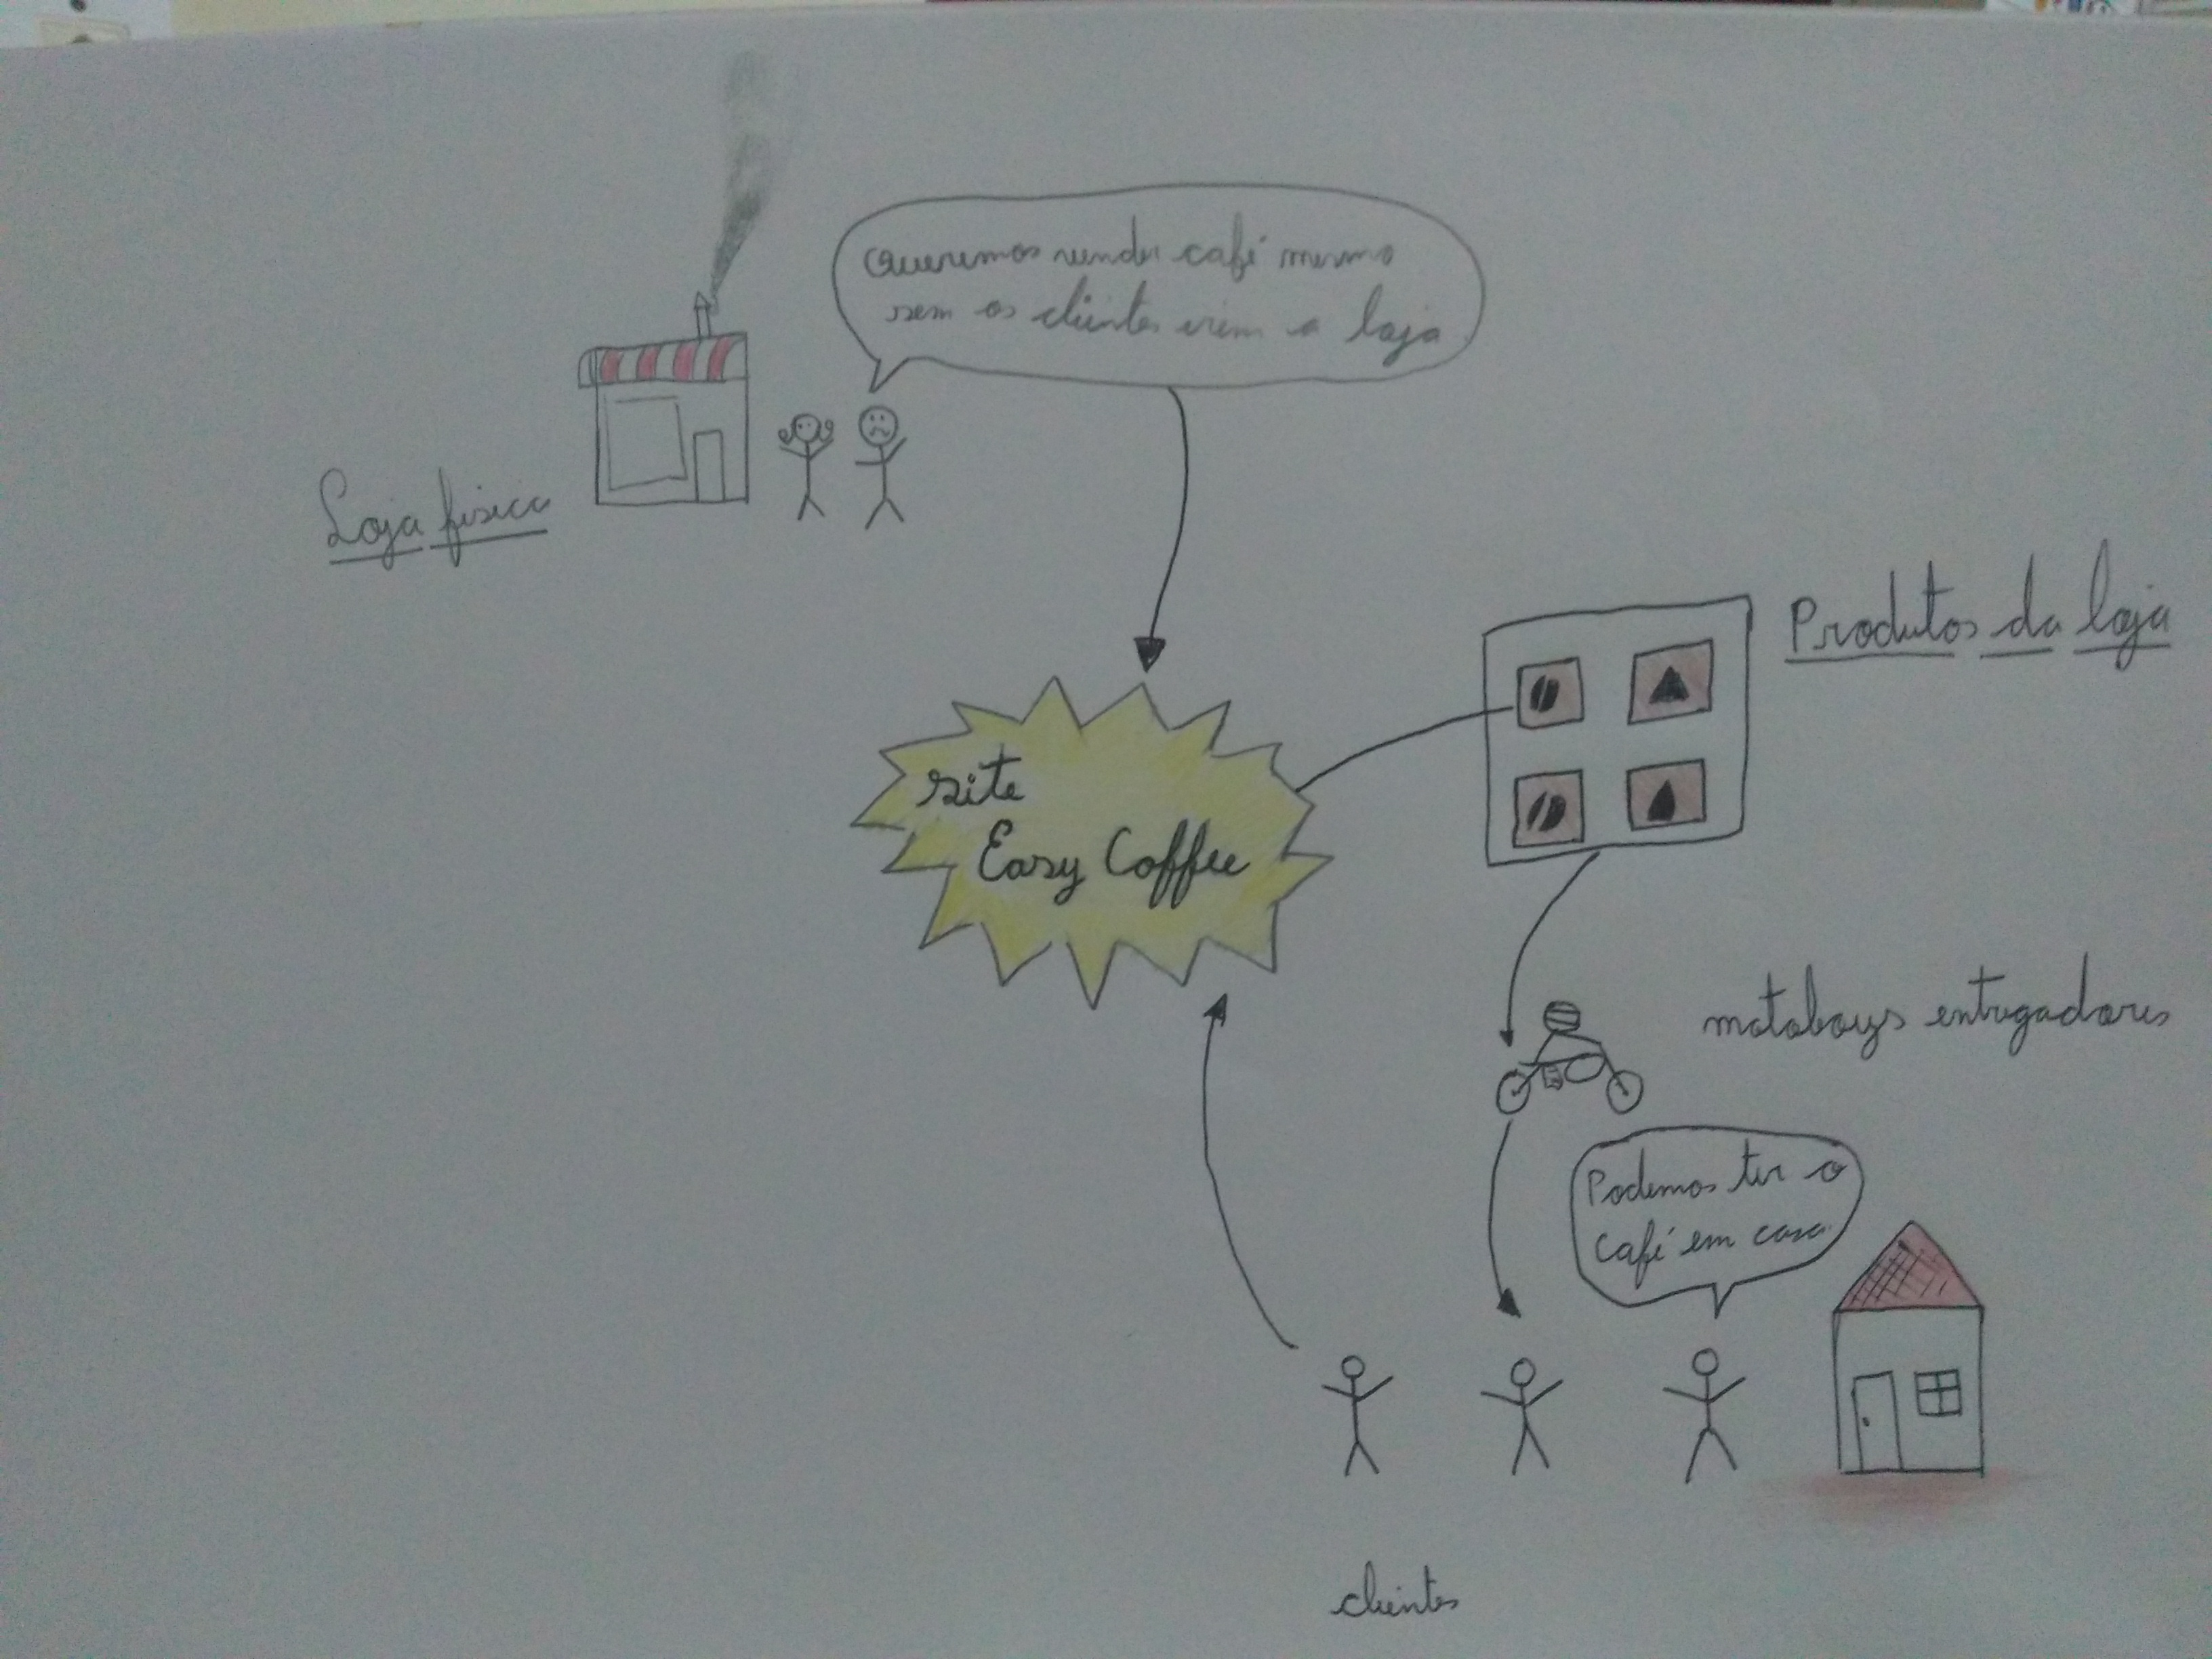 Queremos vender café mesmo
sem os clientes virem a loja
Loja física
Produtos da loja
site
Easy Coffee
motoboys entregadores
Podemos ter o
café em casa
clientes